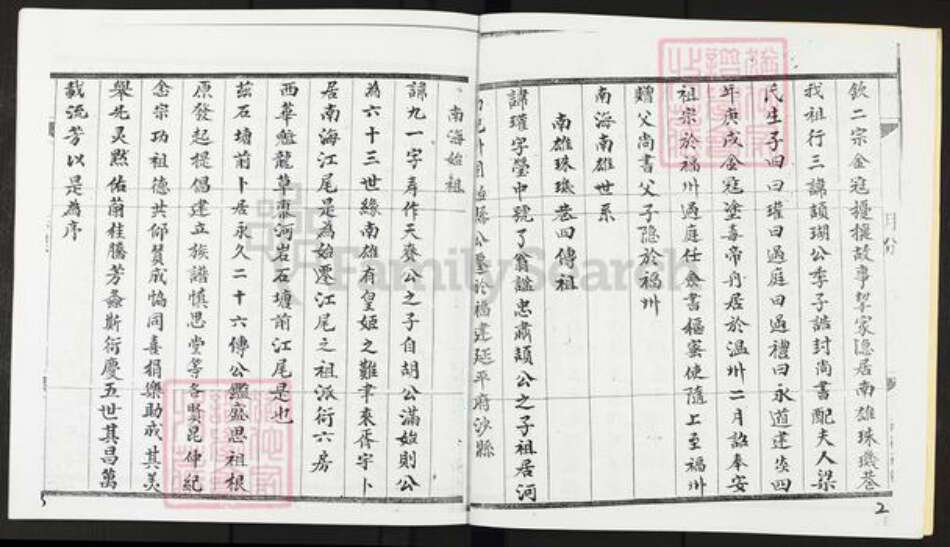 欽二宗金寇擾攘故事挈家隱居南雄珠璣巷
我祖行三諱頡瑚公季子誥封尚書配夫人梁
氏生子四曰瓘曰過庭曰過禮曰永道建炎四
年庚戌金寇塗毒帝舟居於溫州二月詔奉安
祖宗於福州過庭仕僉書樞密使隨上至福州
贈父尚書父子隱於福州
南海南雄世系
南雄珠璣巷四傳祖
諱瓘字瑩中號了翁諡忠肅頡公之子祖居河
公鑒於福建延平府沙縣
南海始祖
諱九一字弄作天齊公之子自胡公滿始則公
為六十三世緣南雄有皇姬之難聿來胥宇卜
居南海江尾是為始遷江尾之祖派衍六房
西華魁龍草漖河岩石塘前江尾是也
茲石塘前卜居永久二十六傳公鑑盛思祖根
原發起提倡建立族譜慎思堂等各賢昆仲紀
念宗功祖德共仰贊成恊同喜捐樂助成其美
舉先灵黙佑蘭桂騰芳螽斯衍慶五世其昌萬
載流芳以是為序
FamilySearch
2